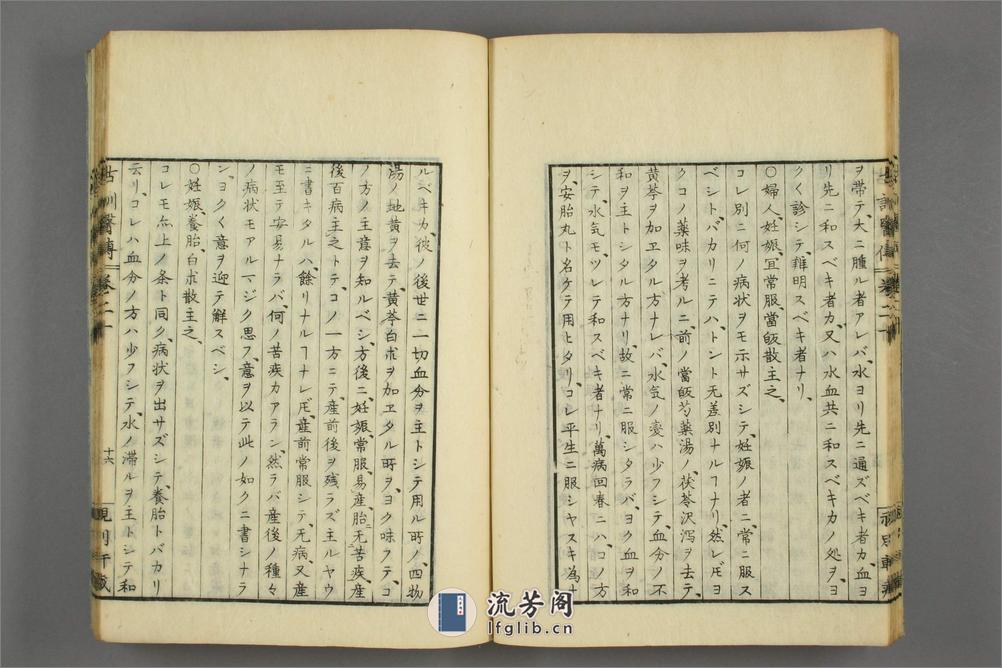 ヲ帶テ、大ニ腫ル者アレバ、水ヨリ先ニ通ズベキ者カ、血ヨ
リ先ニ和スベキ者カ、又ハ水血共ニ和スベキカノ処ヲ、ヨ
クく診シテ、辨明スベキ者ナリ、
〇婦人、妊娠、冝常服當皈散主之、
コレ別ニ何ノ病状ヲモ示サズシテ、妊娠ノ者ニ、常ニ服ス
ベシトバカリニテハ、トント无差別ナルヿナリ、然レ𪜈ヨ
クコノ薬味ヲ考ルニ、前ノ當皈芍薬湯ノ、茯苓沢瀉ヲ去テ、
黄芩ヲ加ヱタル方ナレバ、水気ノ憂ハ少フシテ、血分ノ不
和ヲ主トシタル方ナリ、故ニ常ニ服シタラバ、ヨク血ヲ和
シテ、水気モ、ツレテ和スベキ者ナリ、萬病回春ニハ、コノ方
ヲ、安胎丸ト名ケテ用ヒタリ、コレ平生ニ服シヤスキ為ナ
ルベキカ、従ノ後世ニ、一切血分ヲ主トシテ用ル時ノ、四物
湯ノ地黄ヲ去テ、黄芩白朮ヲ加ヱタル所ヲ、ヨク味フテ、コ
ノ方ノ主意ヲ知ルベシ、方後ニ、妊娠常服、易産、胎ニ无苦疾、産
後百病主之トテ、コノ一方ニテ、産前後ヲ残ラズ主ルヤウ
ニ書キタルハ、餘リナルヿナレ𪜈、産前常服シテ、无病、又産
モ至テ安易ナラバ、何ノ苦疾カアラン、然ラバ産後ノ種々
ノ病状モアルマジク思フ、意ヲ以テ此ノ如クニ書シナラ
ン、ヨクく意ヲ迎テ解スベシ、
〇妊娠、養胎、白朮散主之、
コレモ亦上ノ条ト同ク、病状ヲ出サズシテ、養胎トバカリ
云リ、コレハ血分ノ方ハ少フシテ、水ノ滞ルヲ主トシテ和
古訓醫傳 卷二十
十六
流芳阁
lfglib.cn